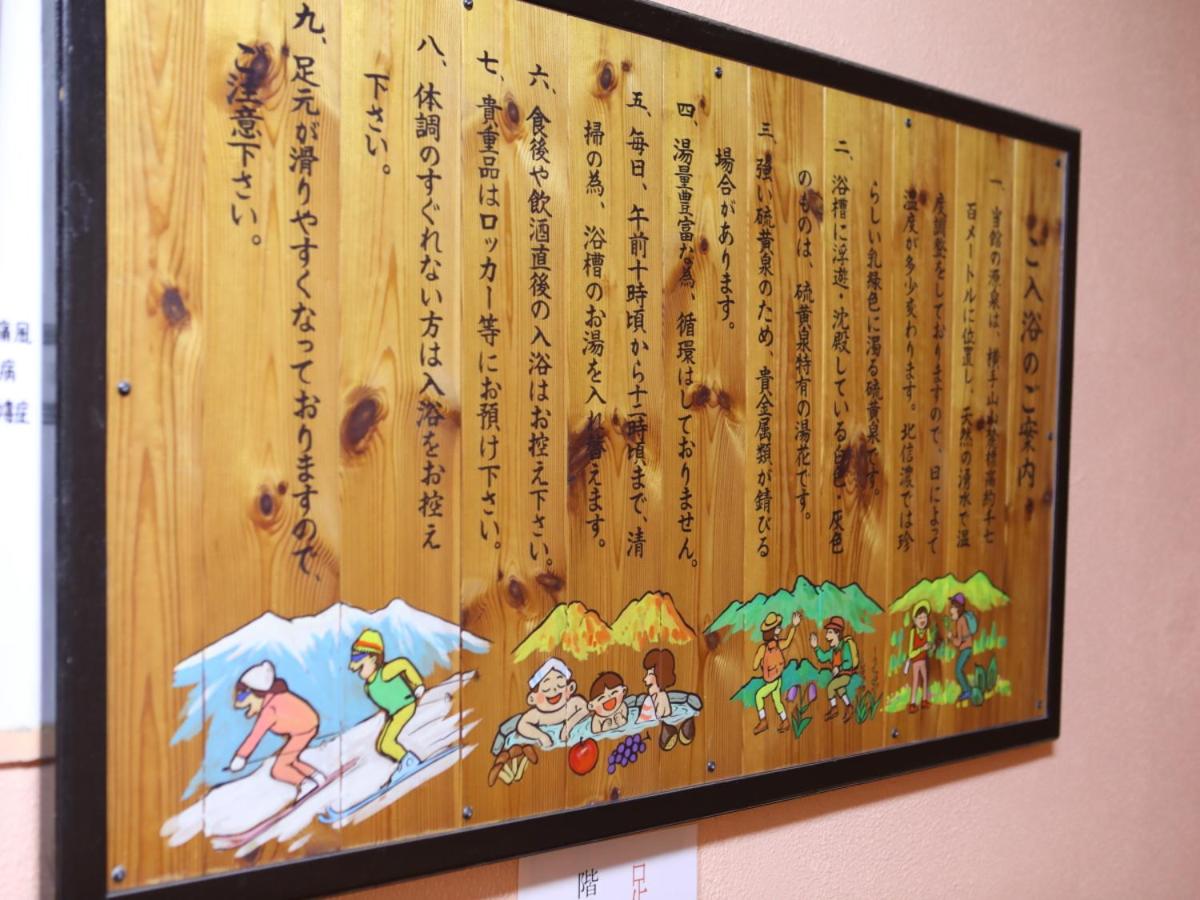 ご入浴のご案内
一、当館の源泉は、横手山山麓標高約千七
百メートルに位置し、天然の湧水で温
度調整をしておりますので、日によって
温度が多少変わります。北信濃では珍
らしい乳緑色に濁る硫黄泉です。
二、浴槽に浮遊・沈殿している白色・灰色
のものは、硫黄泉特有の湯花です。
三、強い硫黄泉のため、貴金属類が錆びる
場合があります。
四、湯量豊富な為、循環はしておりません。
五、毎日、午前十時頃から十二時頃まで、清
掃の為、浴槽のお湯を入れ替えます。
六、食後や飲酒直後の入浴はお控え下さい。
七、貴重品はロッカー等にお預け下さい。
八、体調のすぐれない方は入浴をお控え
下さい。
九、足元が滑りやすくなっておりますので、
ご注意下さい。
痛風
病
階
足